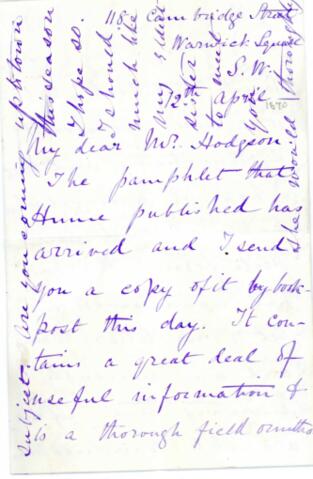 118 Cambridge Street
Warwick Square
S.W.
12th April
1870
My dear Mr. Hodgson
The pamphlet that
Hume published has
arrived and I send
you a copy of it by book-
post this day. It con-
tains a great deal of
useful information &
is a thorough field ornitho
subject. Are you coming up to town
this season
I hope so.
I should
much like
my elder
sister
to meet
you
She would thoroughly